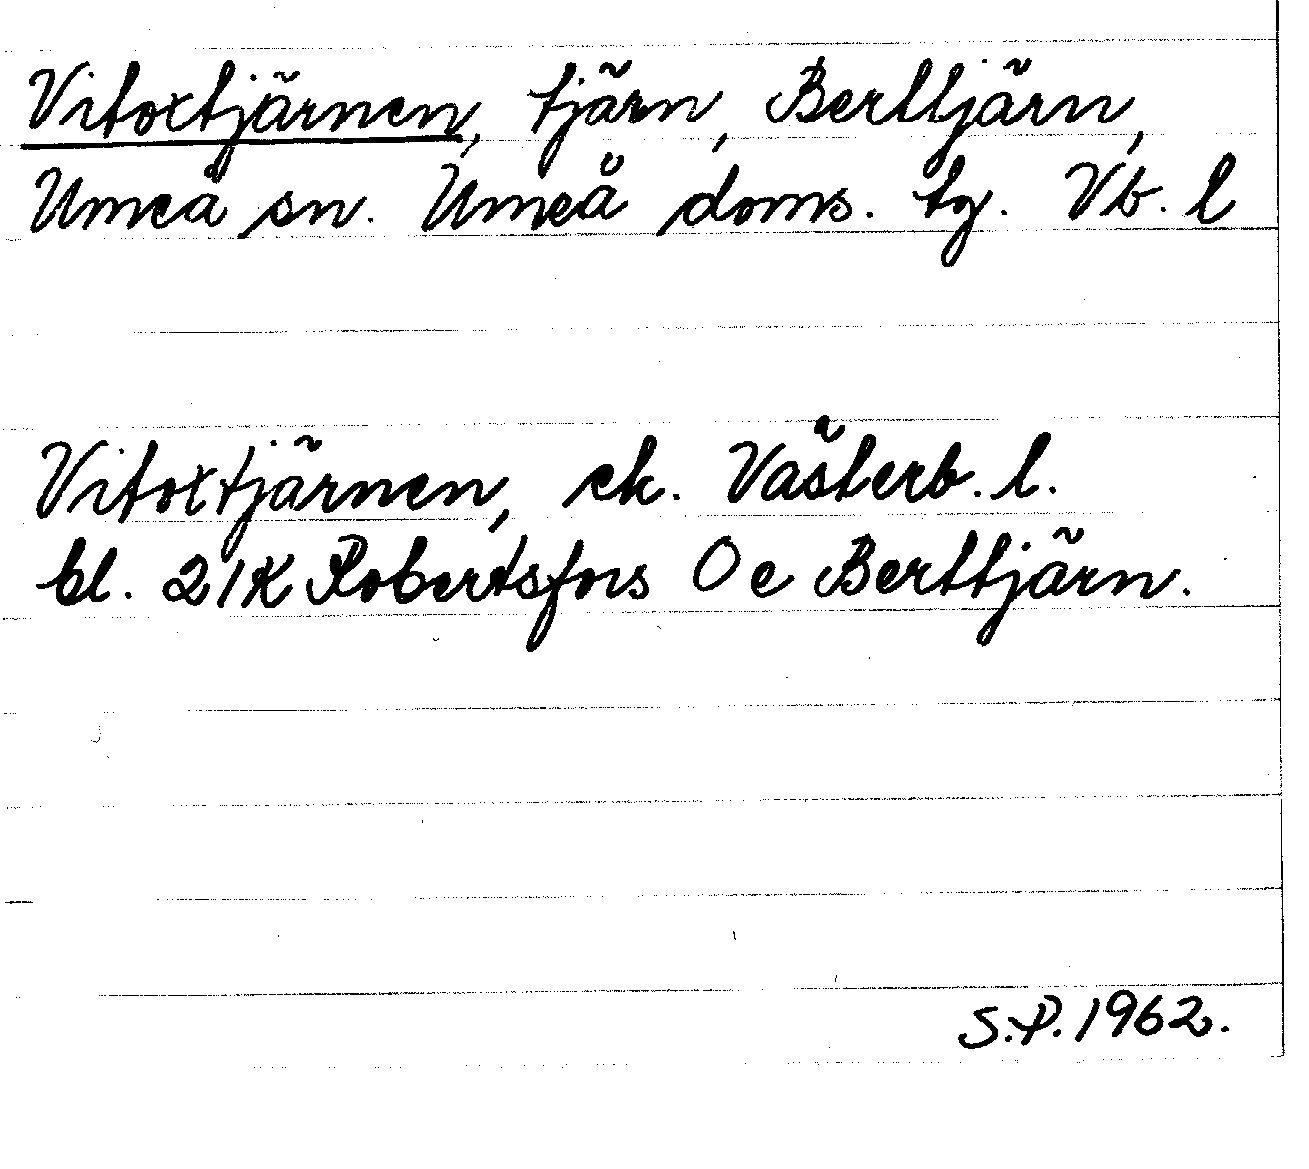 Vitoxtjärnen, tjärn, Berttjärn,
Umeå sn. Umeå doms. tg. Vb. l
Vitoxtjärnen, ek. Västerb. l.
bl. 21K Robertsfors O e Berttjärn.
S.P. 1962.